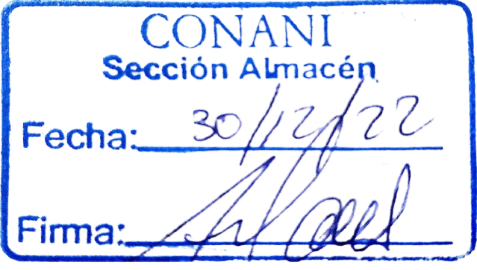 CONANI
Sección Almacén
Fecha: 30/12/22
Firma: